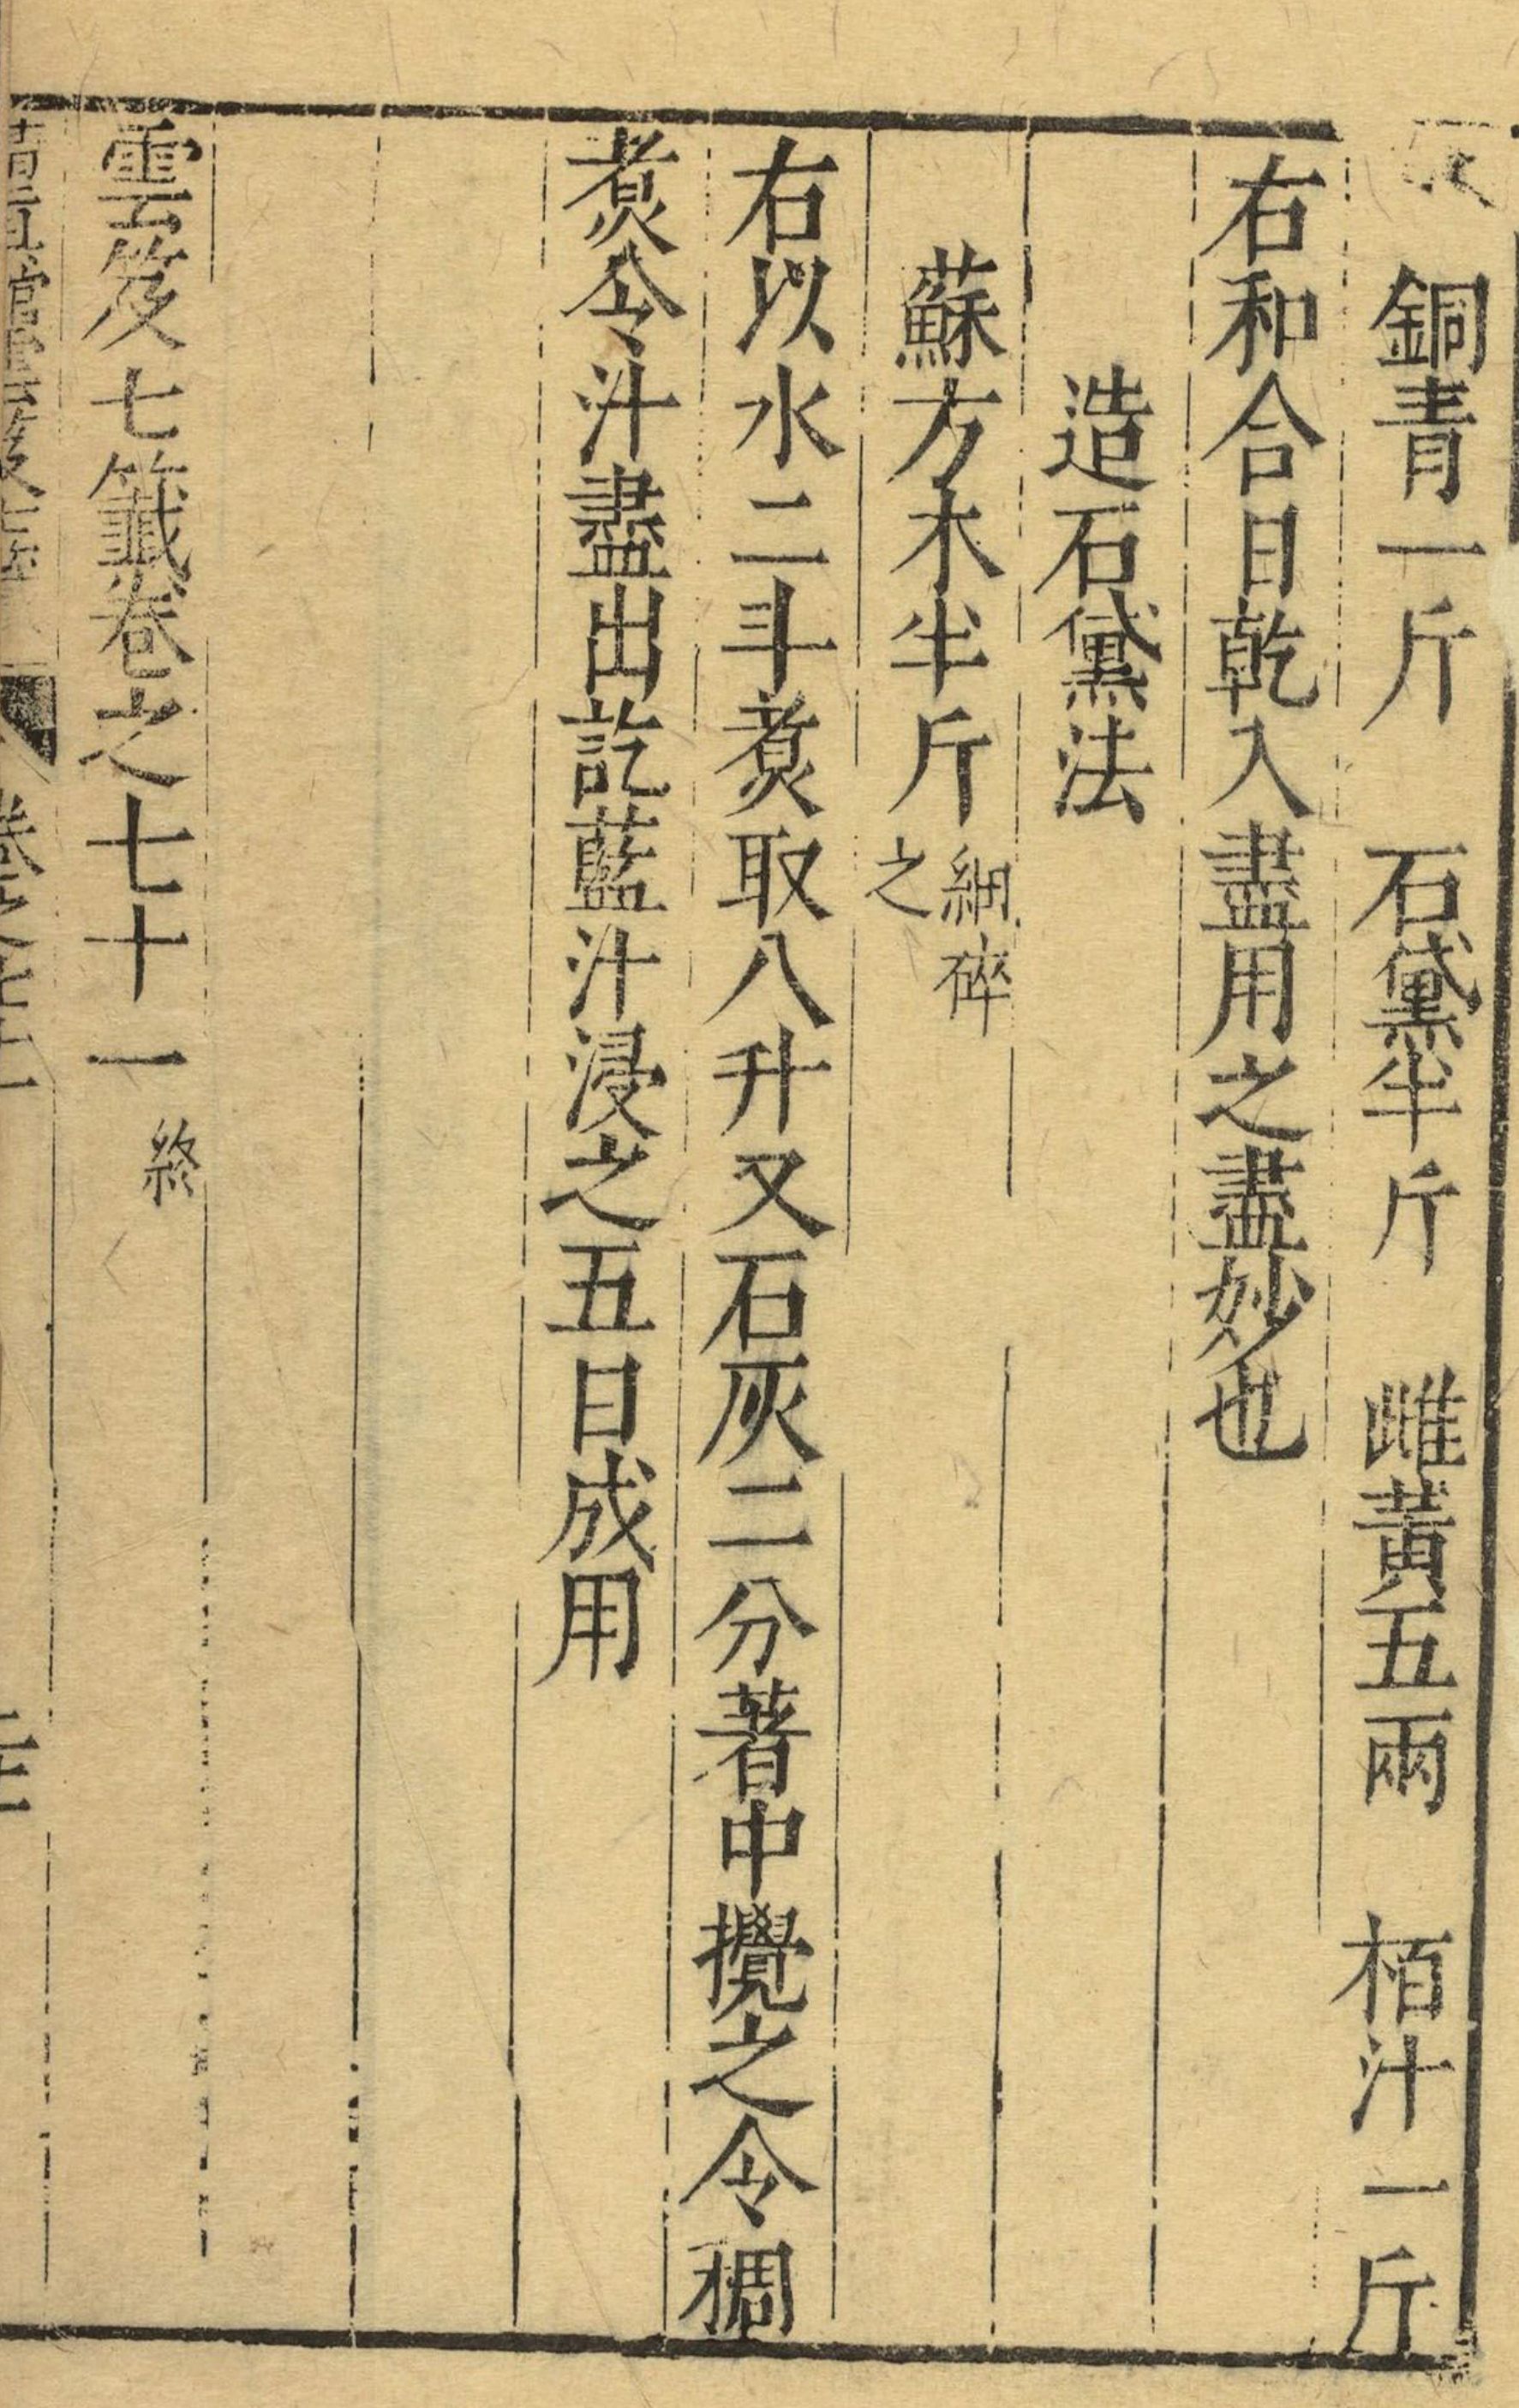 銅青一斤　石黛半斤　雌黃五兩　栢汁一斤
右和合日乾入盡用之盡妙也
造石黛法
蘇方木半斤細碎之
右以水二斗煑取八升又石灰二分著中攪之令稠
煑令汁盡出訖藍汁浸之五日成用
雲笈七籖卷之七十一終